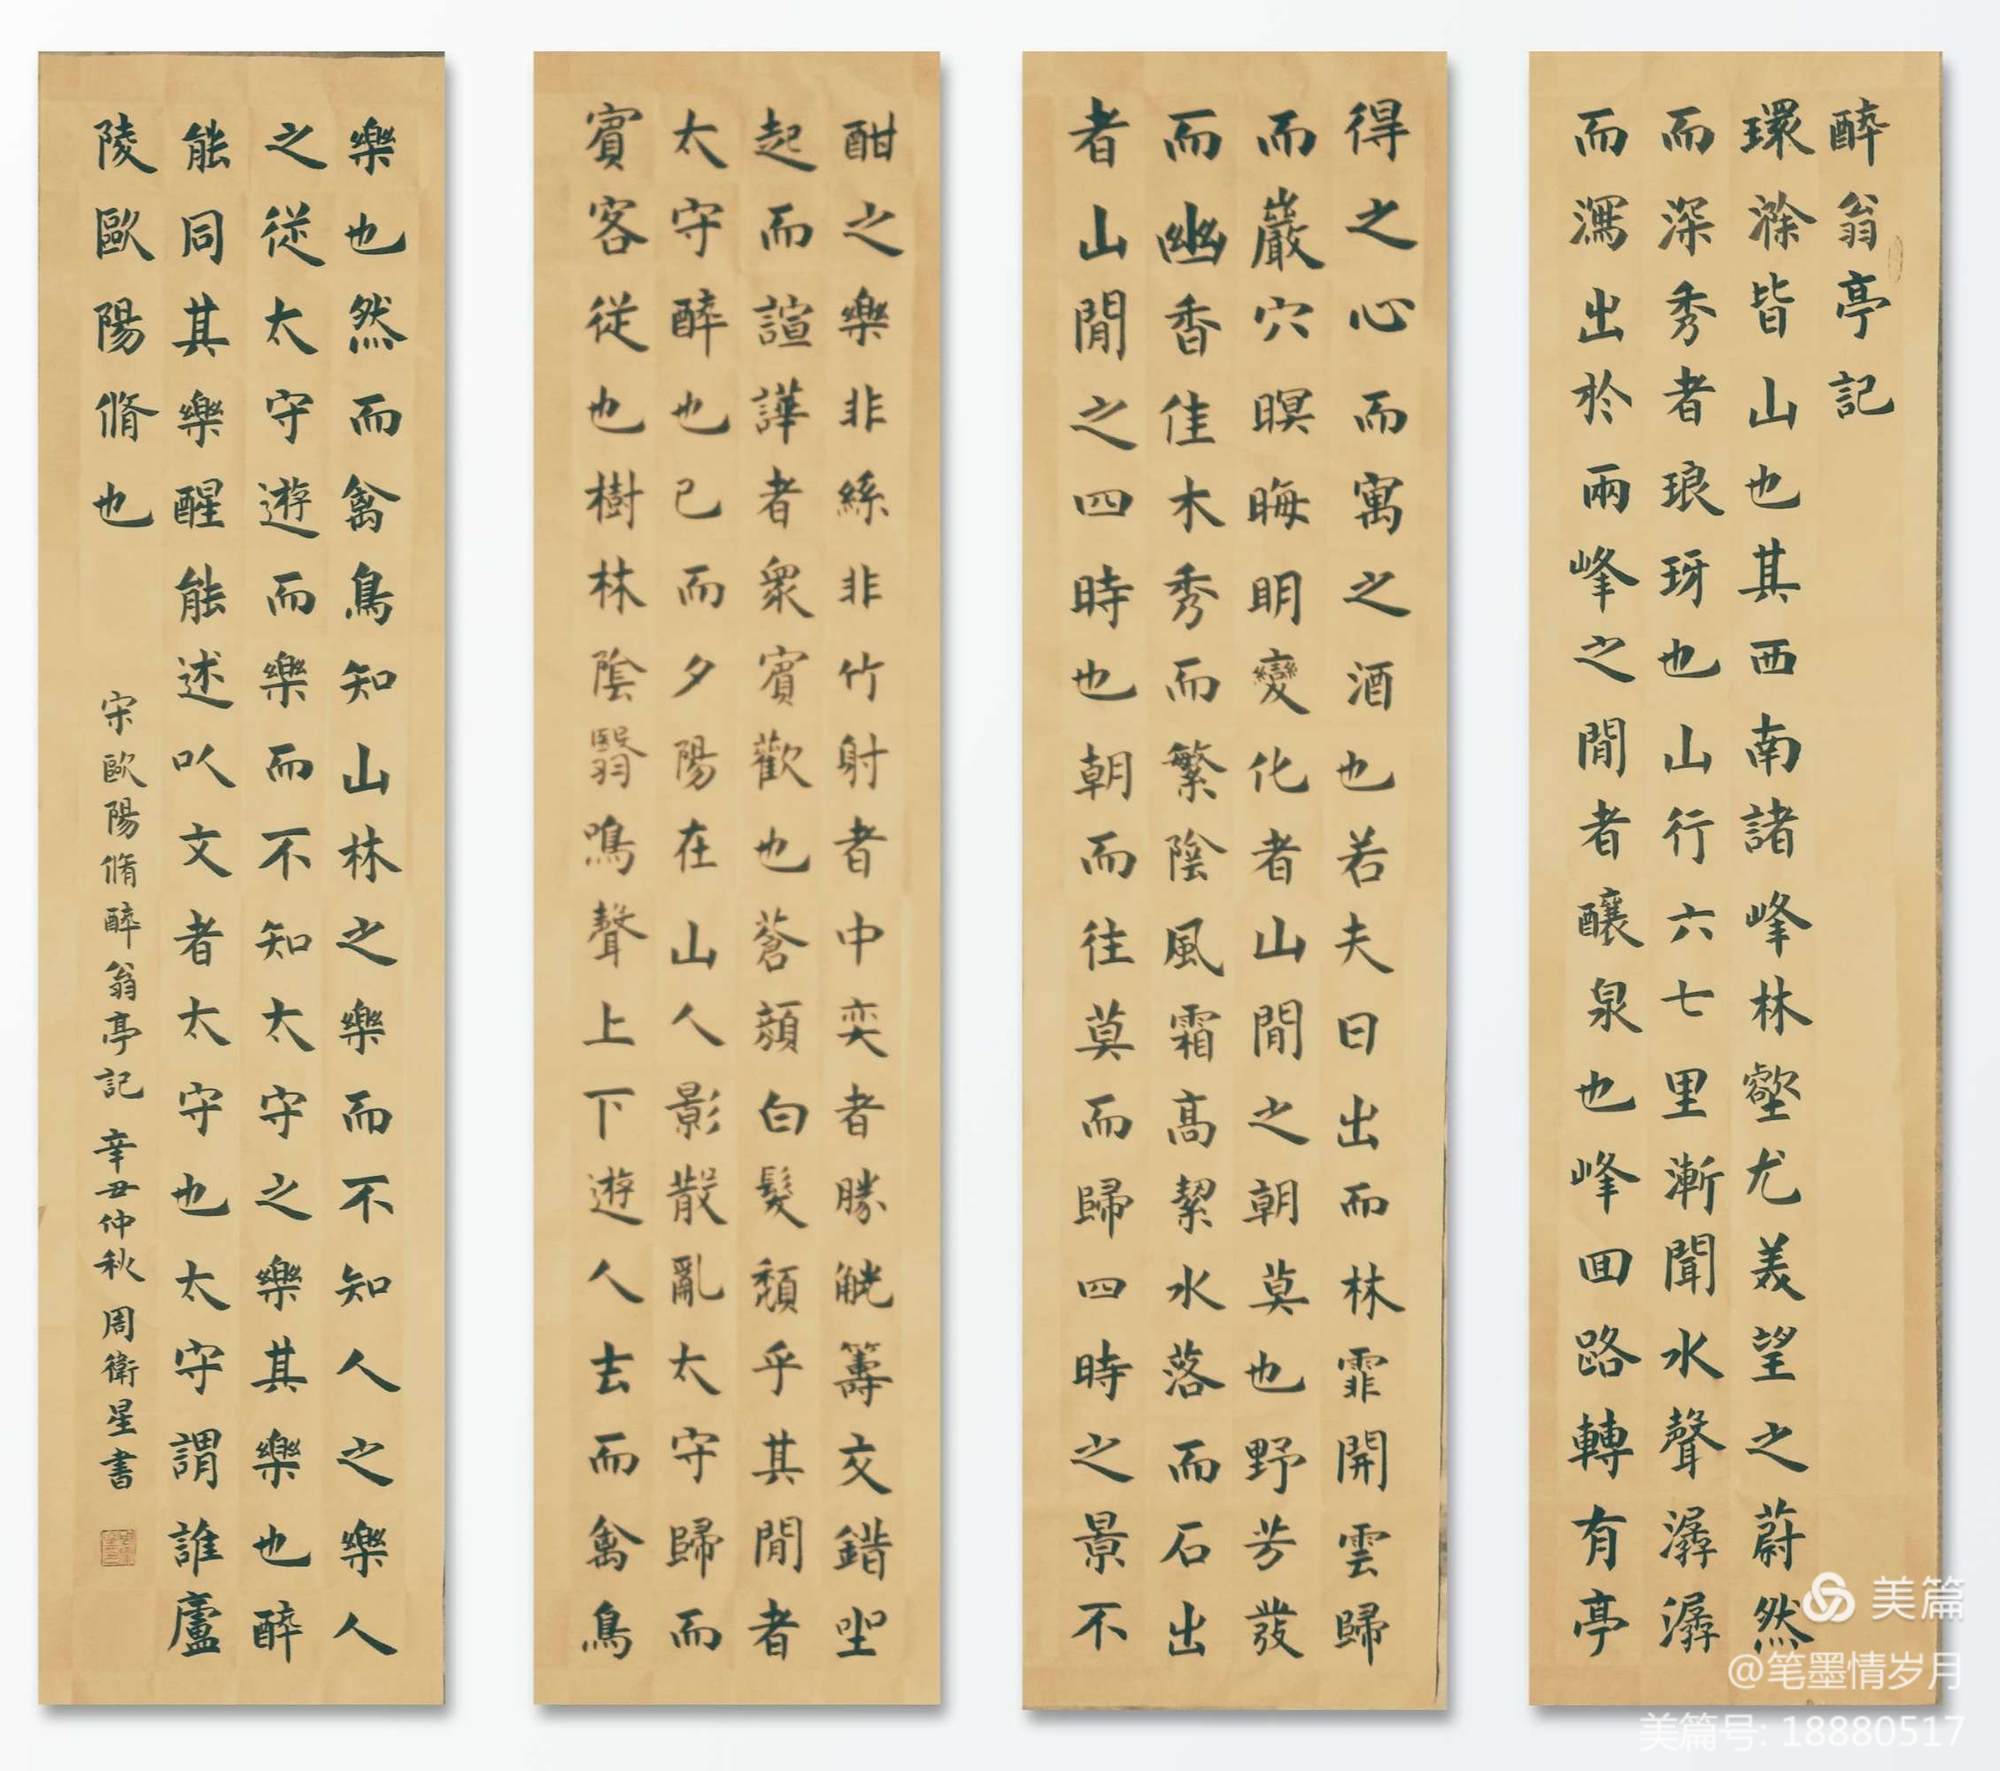 醉翁亭記
環滁皆山也其西南諸峰林壑尤美望之蔚然
而深秀者琅玡也山行六七里漸聞水聲潺潺
而瀉出於兩峰之閒者釀泉也峰囬路轉有亭
得之心而寓之酒也若夫日出而林霏開雲歸
而巖穴暝晦明變化者山閒之朝莫也野芳發
而幽香佳木秀而繁陰風霜高絜水落而石出
者山閒之四時也朝而往莫而歸四時之景不
酣之樂非絲非竹射者中奕者勝觥籌交錯坐
起而諠譁者眾賓歡也蒼顏白髮頹乎其閒者
太守醉也已而夕陽在山人影散亂太守歸而
賓客從也樹林陰翳鳴聲上下遊人去而禽鳥
樂也然而禽鳥知山林之樂而不知人之樂人
之從太守遊而樂而不知太守之樂其樂也醉
能同其樂醒能述以文者太守也太守謂誰廬
陵歐陽脩也
宋歐陽脩醉翁亭記 辛丑仲秋 周衛星書
美篇
@笔墨情岁月
美篇号: 18880517